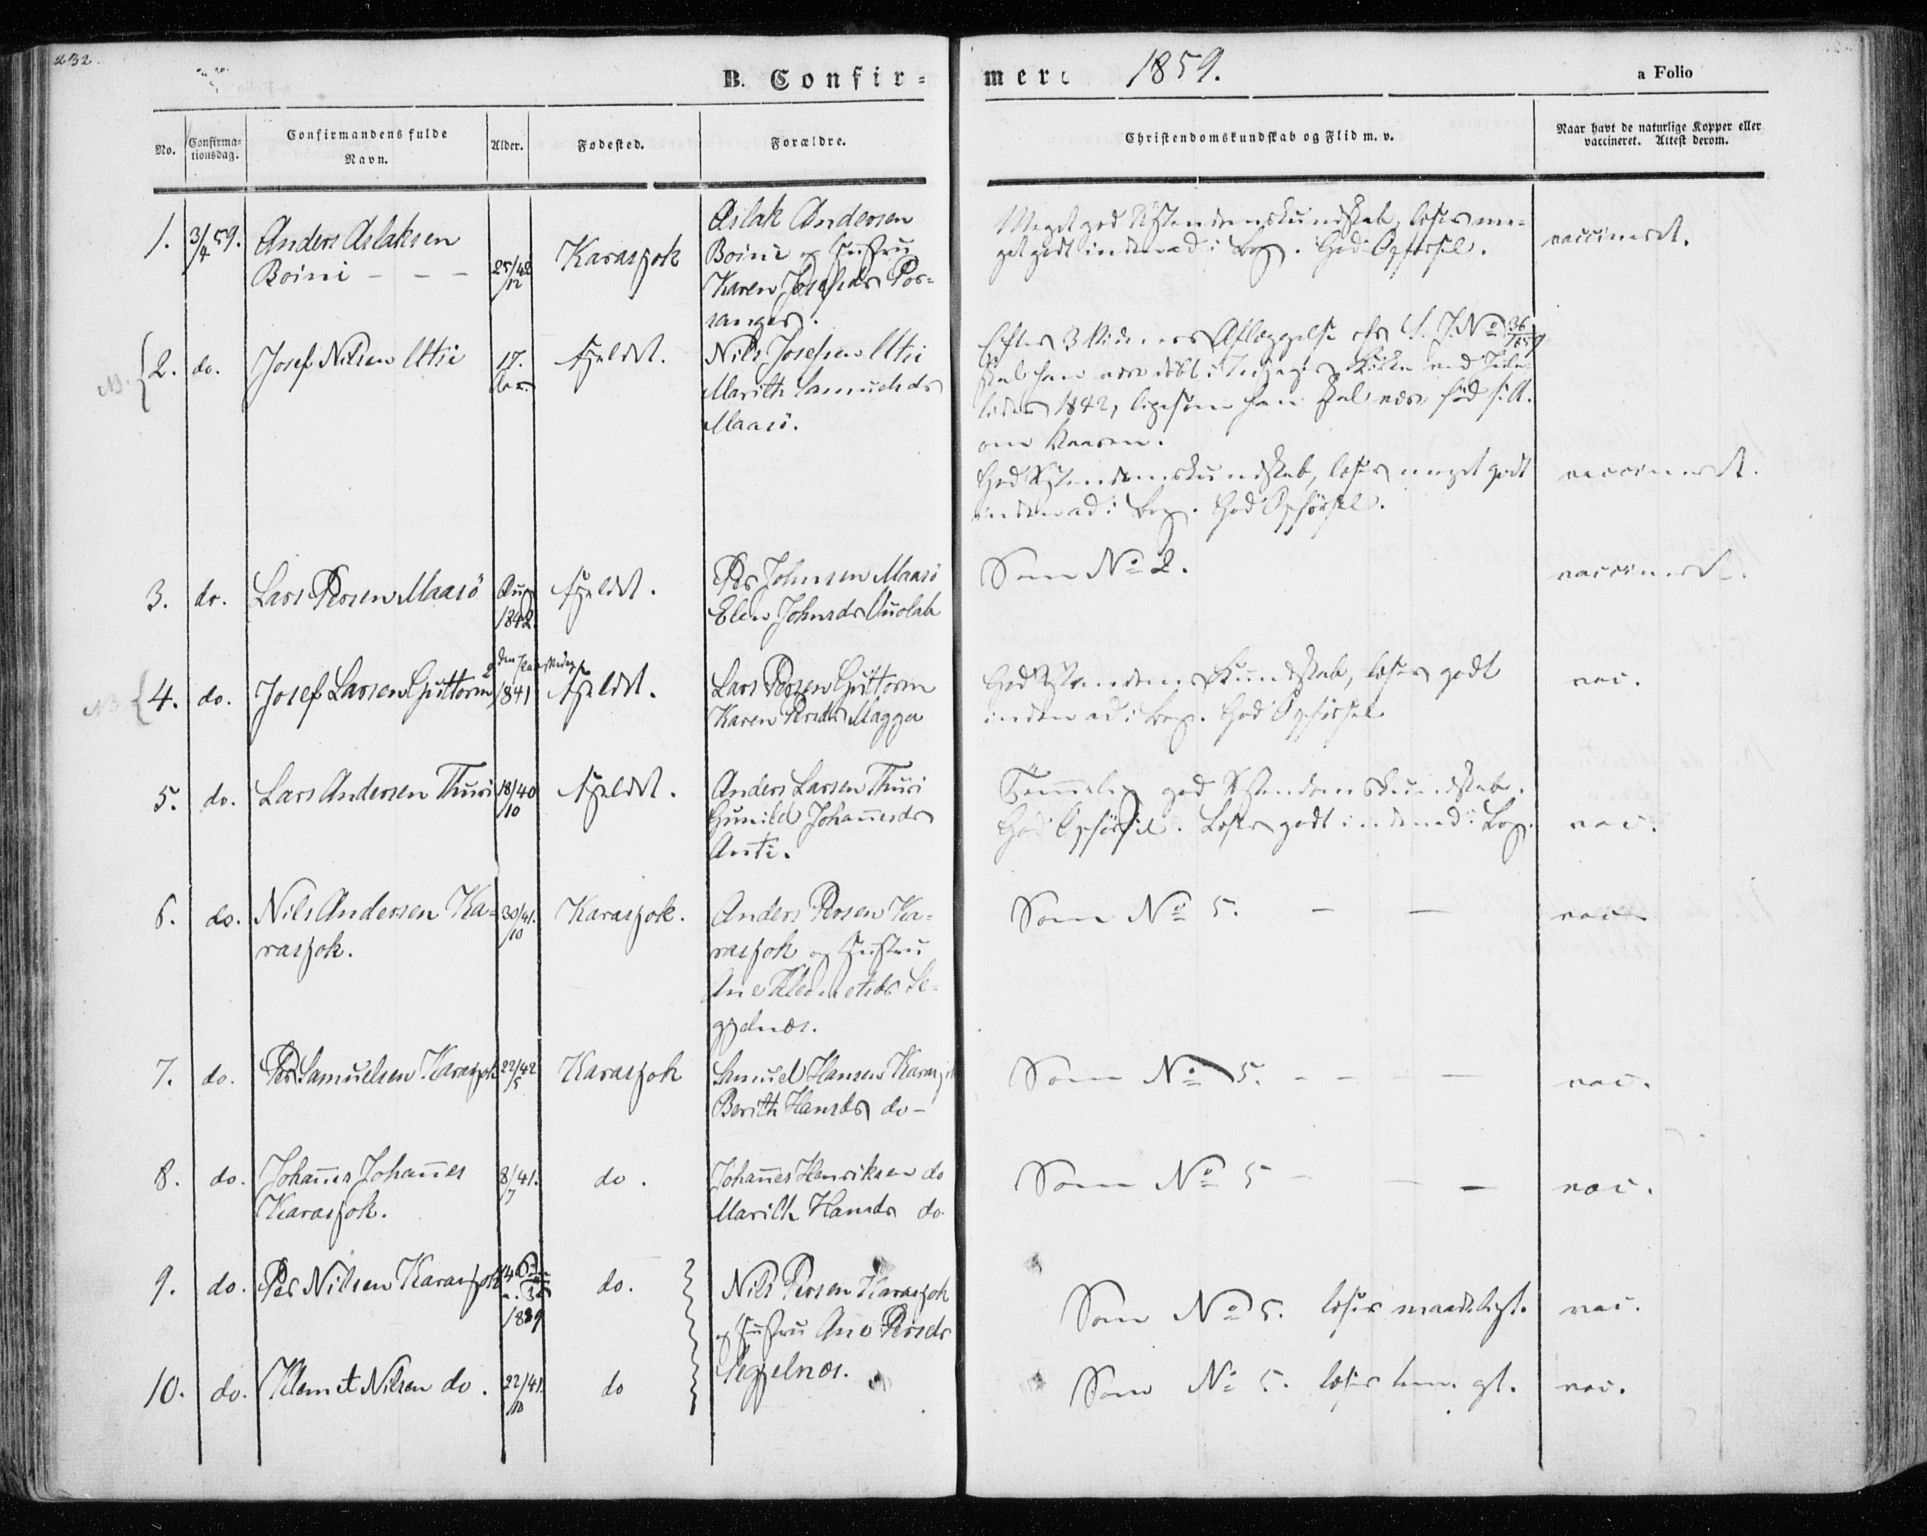 232.
B. Confir-
mere 1859.
a Folio
No.
Confirma-
tionsdag.
Confirmandens fulde
Navn.
Alder.
Fødested.
Forældre.
Christendomskundskab og Flid m. v.
Naar havt de naturlige Kopper eller
vaccineret. Attest derom.
1. 3/4 59. Anders Aslaksen
Boini - - -
25/42
/12
Karasjok
Aslak Andersen
Boini og Hustru
Karen Josefsdr Por-
sanger.
Meget god Xstendomskundskab, læser me-
get godt indenad i Bog. God Opførsel.
vaccineret.
NB. 2. do. Josef Nilsen Utsi
17.
Aar
Fjeldet.
Nils Josefsen Utsi
Marith Samuelsdr
Maasö.
Efter 3 Vidners Aflæggelse cfr J. No 36/1859
skal han være døbt i Kirke ved Jule-
tider 1842, ligesom han skal være fød
om Vaaren.
God Xstendomskundskab, læser meget godt
indenad i Bog. God Opførsel.
vaccineret.
3. do. Lars Persen Maasö
Aug
1842.
Fjeldet.
Per Johnsen Maasö
Elen Johnsdr Auolab
Som No 2.
vaccineret.
NB. 4. do. Josef Larsen Guttorm
1841
Fjeldet.
Lars Persen Guttorm
Karen Persdr Magga
God Xstendomskundskab, læser godt
indenad i Bog. God Opførsel
vac.
5. do. Lars Andersen Thuri
18/40
/10
Fjeldet.
Anders Larsen Thuri
Gunild Johannesdr
Anti.
Temmelig god Xstendomskundskab.
God Opførsel. Læser godt indenad i Bog.
vac.
6. do. Nils Andersen Ka-
rasjok.
30/41.
/10
Karasjok.
Anders Persen Ka-
rasjok og Hustru
Ane Klemetsdr Se-
gelnæs.
Som No 5. - -
vac.
7. do. Per Samuelsen Karasjok
22/42
/5
Karasjok
Samuel Hansen Karasjok
Berith Hansdr do -
Som No 5. - - - -
vac.
8. do. Johannes Johannes
Karasjok.
8/41.
/7
do.
Johannes Henriksen do
Marith Hansdr do.
Som No 5 - - -
vac.
9. do. Per Nilsen Karasjok
1839
do.
Nils Persen Karasjok
og Hustru Ane Persdr
Segelnæs.
Som No 5. læser maadeligt.
vac.
10. do. Klemet Nilsen do.
22/41.
/10
do
Som No 5. læser tem. gt.
vac.